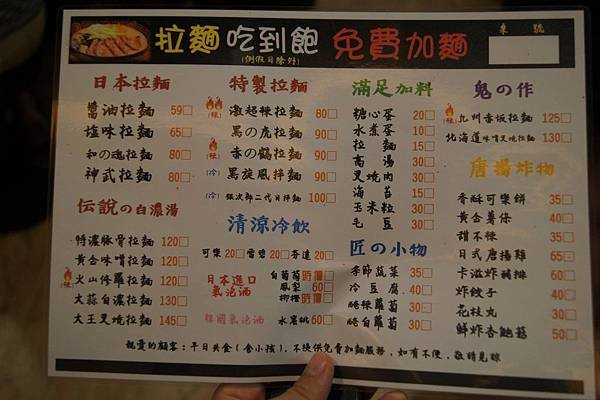 拉麵吃到飽 免費加麵
(例假日除外)
桌號
日本拉麵
醬油拉麵 59□
塩味拉麵 65□
和の魂拉麵 80□
神武拉麵 80□
傳説の白濃湯
特濃豚骨拉麵 120□
黃金味噌拉麵 120□
(辣) 火山修羅拉麵 120□
大蒜白濃拉麵 130□
大王叉燒拉麵 145□
特製拉麵
(辣) 激超辣拉麵 80□
黑の虎拉麵 90□
(辣) 赤の鶴拉麵 90□
(冷) 黑旋風拌麵 90□
(冷) 銀次郎二代目拌麵 100□
清涼冷飲
可樂 20□ 雪碧 20□ 芬達 20□
日本進口氣泡酒
白葡萄 時價□
鳳梨 60□
柳橙 時價□
韓國氣泡酒 水蜜桃 60□
滿足加料
糖心蛋 20□
水煮蛋 10□
拉麵 15□
高湯 30□
叉燒肉 30□
海苔 15□
玉米粒 30□
毛豆 30□
匠の小物
季節蔬菜 35□
冷豆腐 40□
醃辣蘿蔔 30□
醃白蘿蔔 30□
鬼の作
(辣) 九州香板拉麵 125□
北海道味噌叉燒拉麵 130□
唐揚炸物
香酥可樂餅 35□
黃金薯條 40□
甜不辣 35□
日式唐揚雞 65□
卡滋炸豬排 60□
炸餃子 40□
花枝丸 30□
鮮炸杏鮑菇 50□
親愛的顧客：平日共食(含小孩)，不提供免費加麵服務，如有不便，敬請見諒